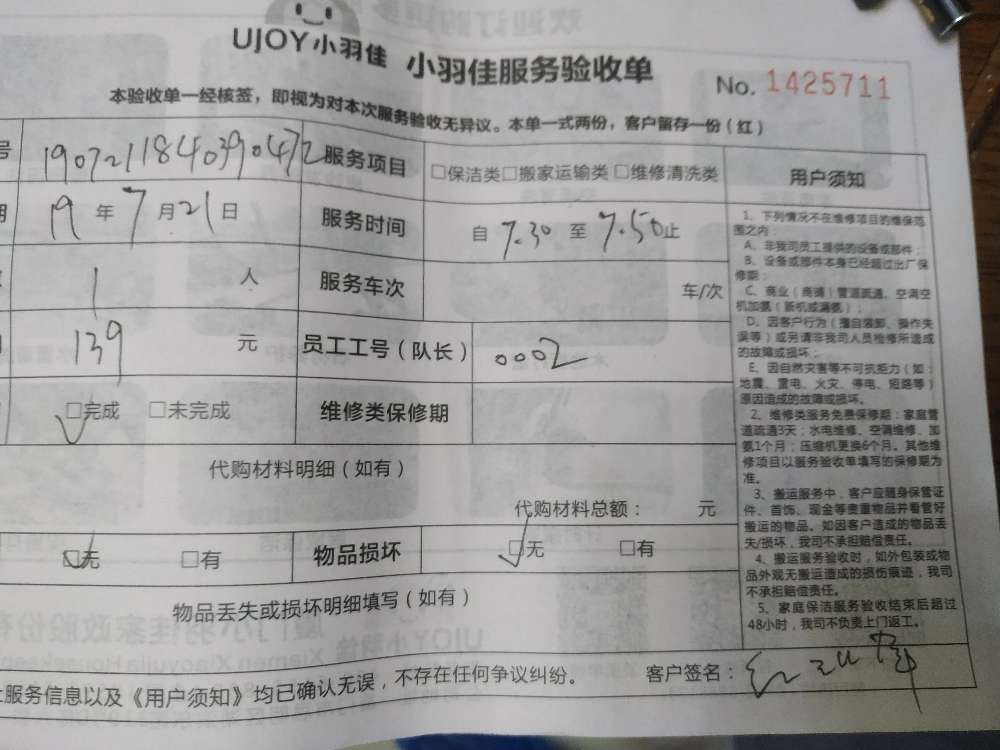 UJOY小羽佳 小羽佳服务验收单
No. 1425711
本验收单一经核签，即视为对本次服务验收无异议。本单一式两份，客户留存一份（红）
号 1907211840390472 服务项目 □保洁类□搬家运输类 □维修清洗类 用户须知
期 19 年 7 月 21 日 服务时间 自 7.30 至 7.50 止
1 人 服务车次 车/次
139 元 员工工号（队长） 0002
□完成 □未完成 维修类保修期
代购材料明细（如有）
代购材料总额： 元
□无 □有 物品损坏 □无 □有
物品丢失或损坏明细填写（如有）
1、下列情况不在维修项目的维保范
围之内：
A、非我司员工提供的设备或部件；
B、设备或部件本身已经超过出厂保
修期；
C、商业（商铺）管道疏通、空调空
机加氨（新机或漏氨）；
D、因客户行为（擅自装卸、操作失
误等）或另请非我司人员检修所造成
的故障或损坏；
E、因自然灾害等不可抗拒力（如：
地震、雷电、火灾、停电、短路等）
原因造成的故障或损坏。
2、维修类服务免费保修期：家庭管
道疏通3天；水电维修、空调维修、加
氨1个月；压缩机更换6个月。其他维
修项目以服务验收单填写的保修期为
准。
3、搬运服务中，客户应随身保管证
件、首饰、现金等贵重物品并看管好
搬运的物品。如因客户造成的物品丢
失/损坏，我司不承担赔偿责任。
4、搬运服务验收时，如外包装或物
品外观无搬运造成的损伤痕迹，我司
不承担赔偿责任。
5、家庭保洁服务验收结束后超过
48小时，我司不负责上门返工。
上服务信息以及《用户须知》均已确认无误，不存在任何争议纠纷。 客户签名：